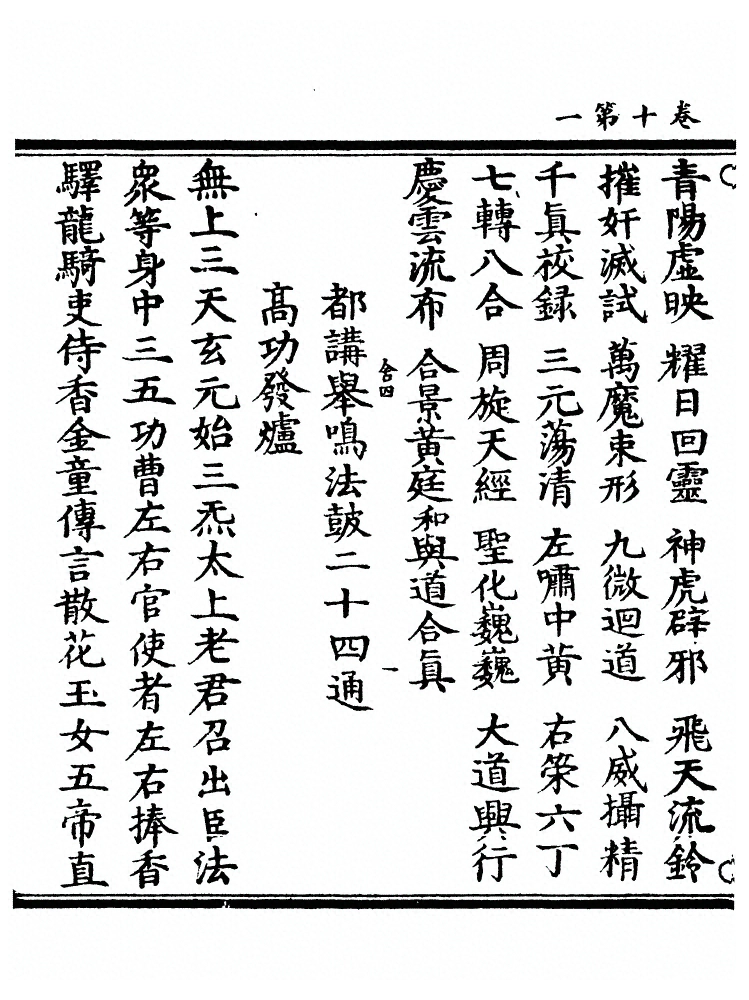 卷十第一
青陽虛映　耀日回靈　神虎辟邪　飛天流鈴
摧奸滅試　萬魔束形　九微迴道　八威攝精
千眞校錄　三元蕩清　左嘯中黄　右策六丁
七轉八合　周旋天經　聖化巍巍　大道興行
慶雲流布　合景黄庭　和與道合眞
舍四　一
都講舉鳴法鼓二十四通
高功發爐
無上三天玄元始三炁太上老君召出臣法
眾等身中三五功曹左右官使者左右捧香
驛龍騎吏侍香金童傳言散花玉女五帝直